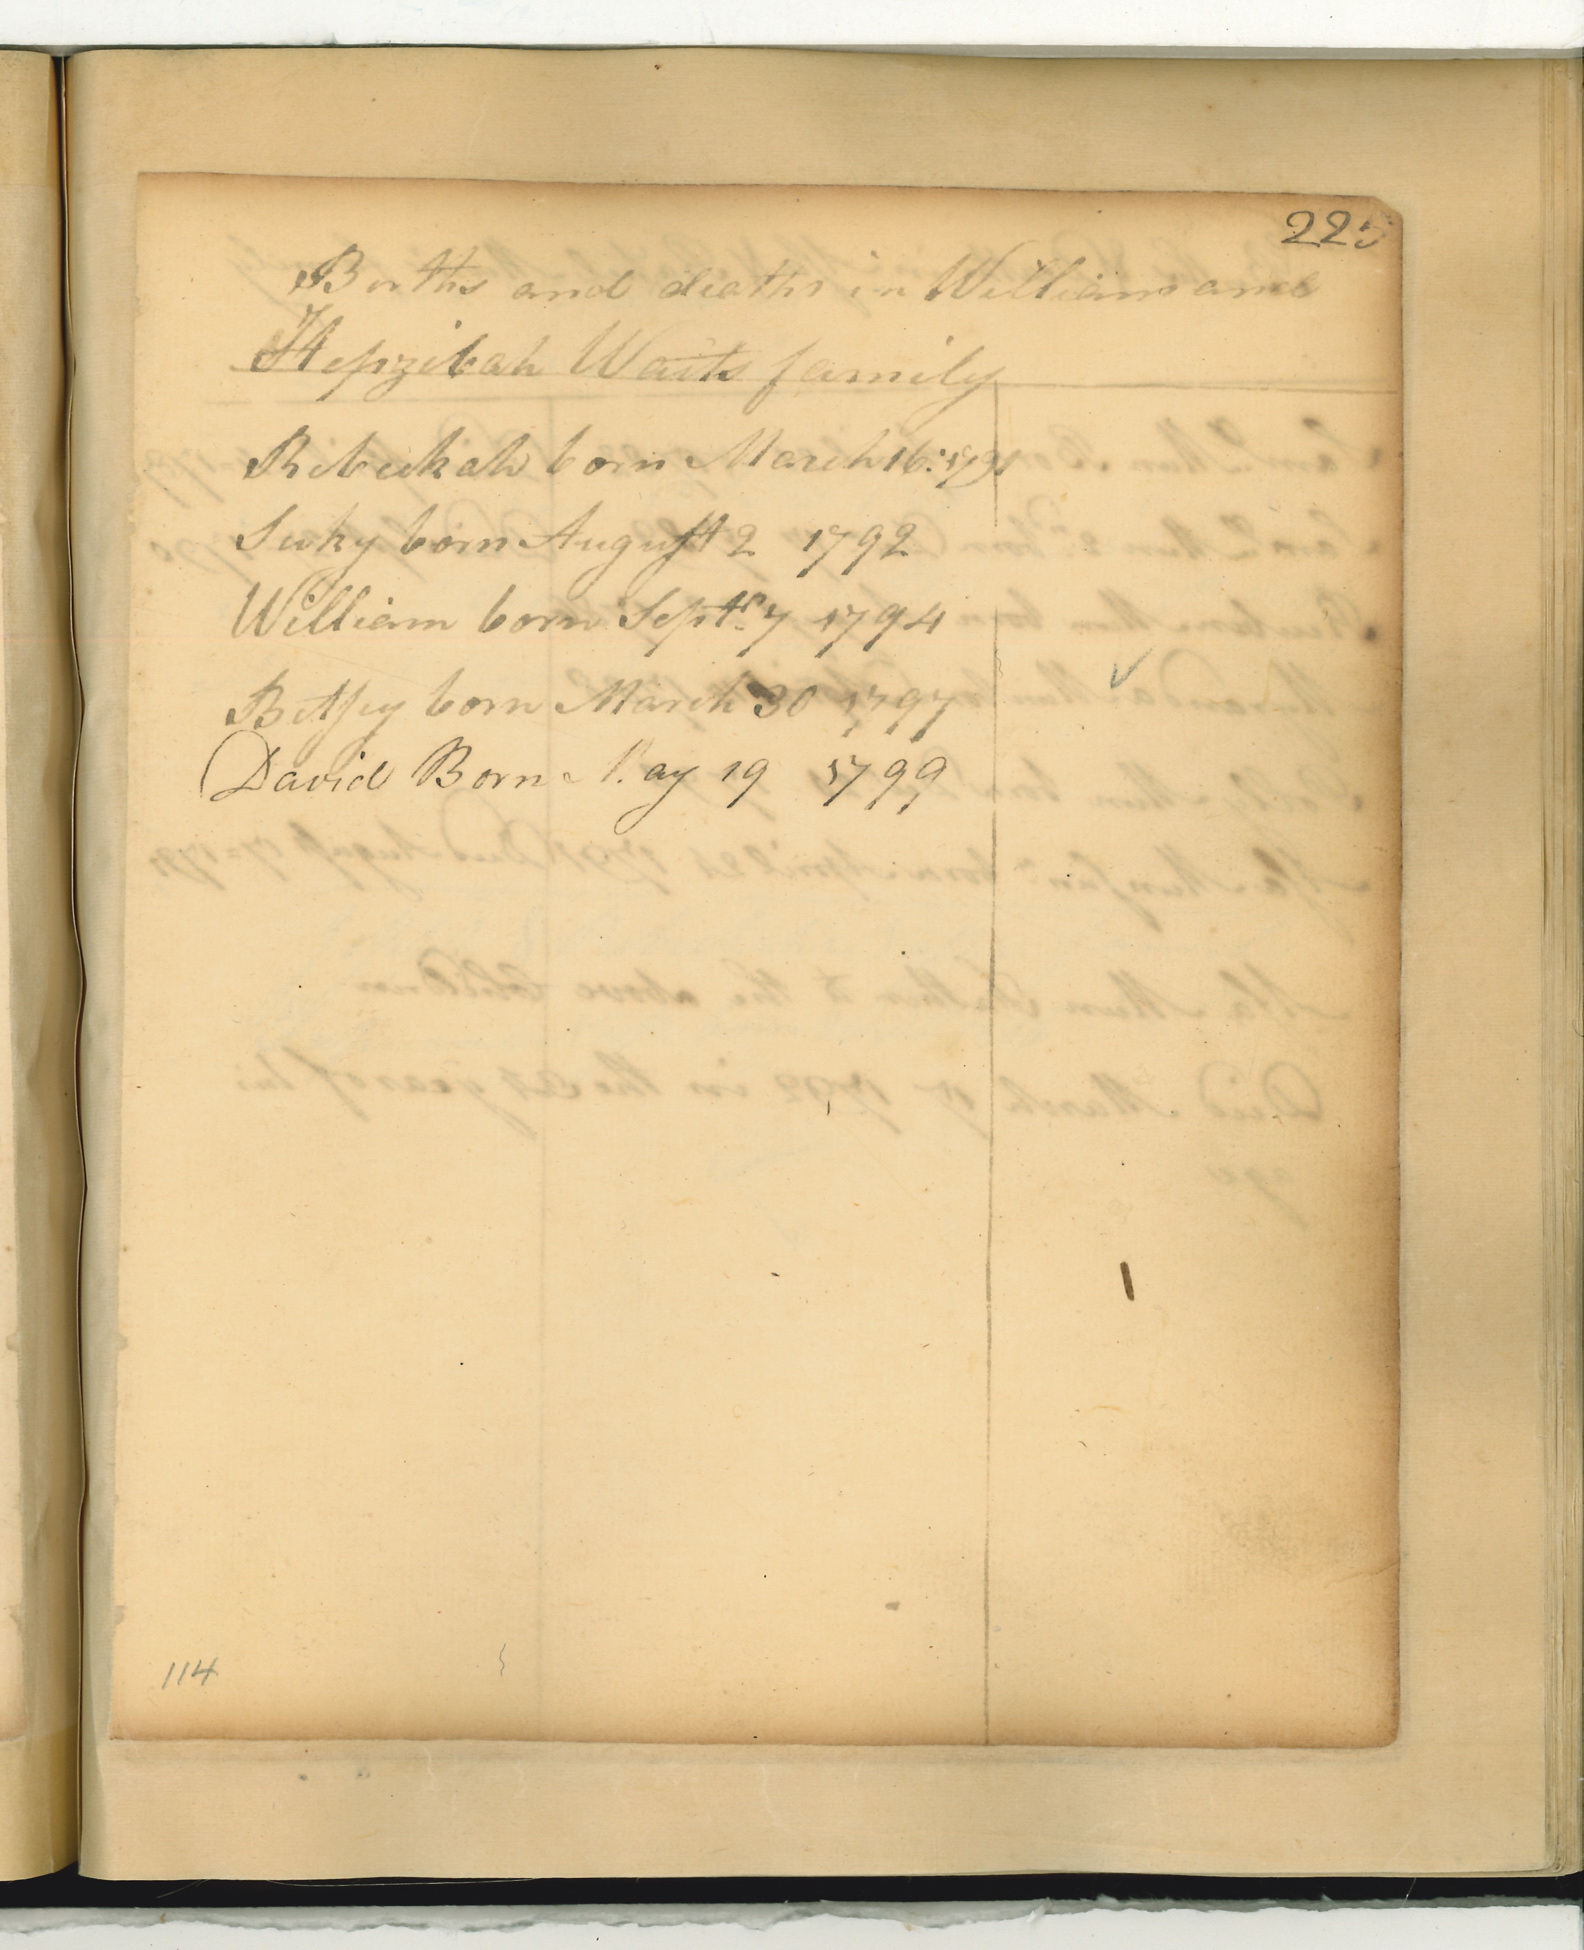 225
Births and deaths in William and
Hepzibah Waits family
Rebeckah born March 16: 1791
Suky born August 2 1792
William born Septr. 7 1794
Betsey born March 30 1797
David Born May 19 1799
114